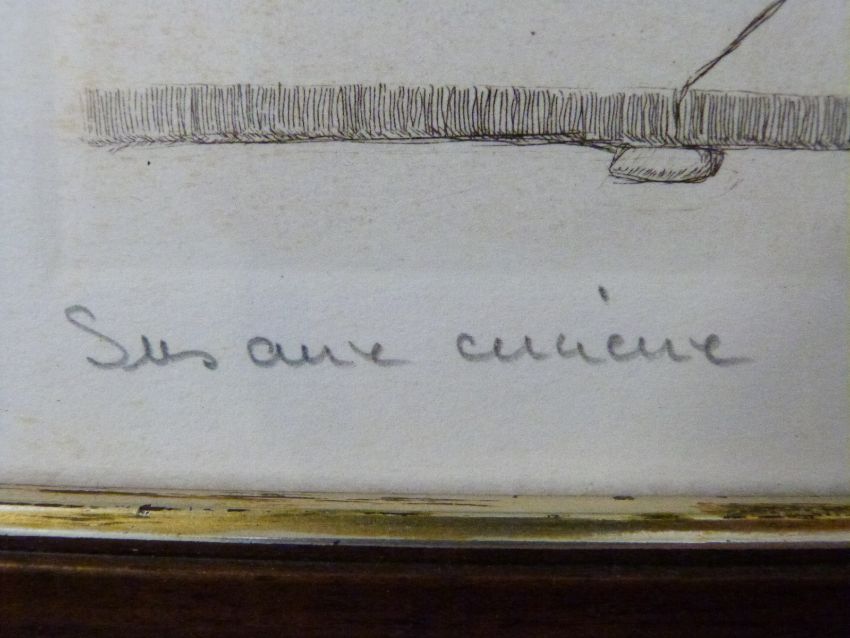 Sus aux curieux